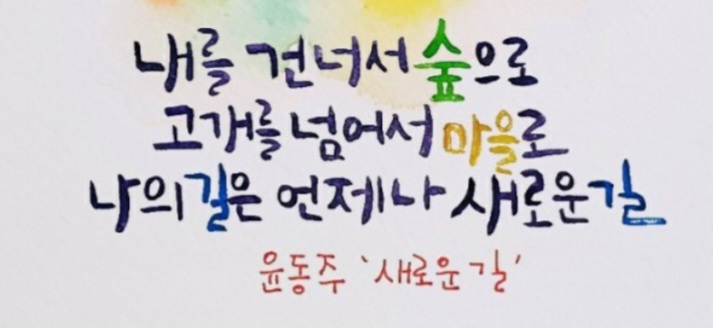 내를 건너서 숲으로
고개를 넘어서 마을로
나의 길은 언제나 새로운 길
윤동주 '새로운 길'